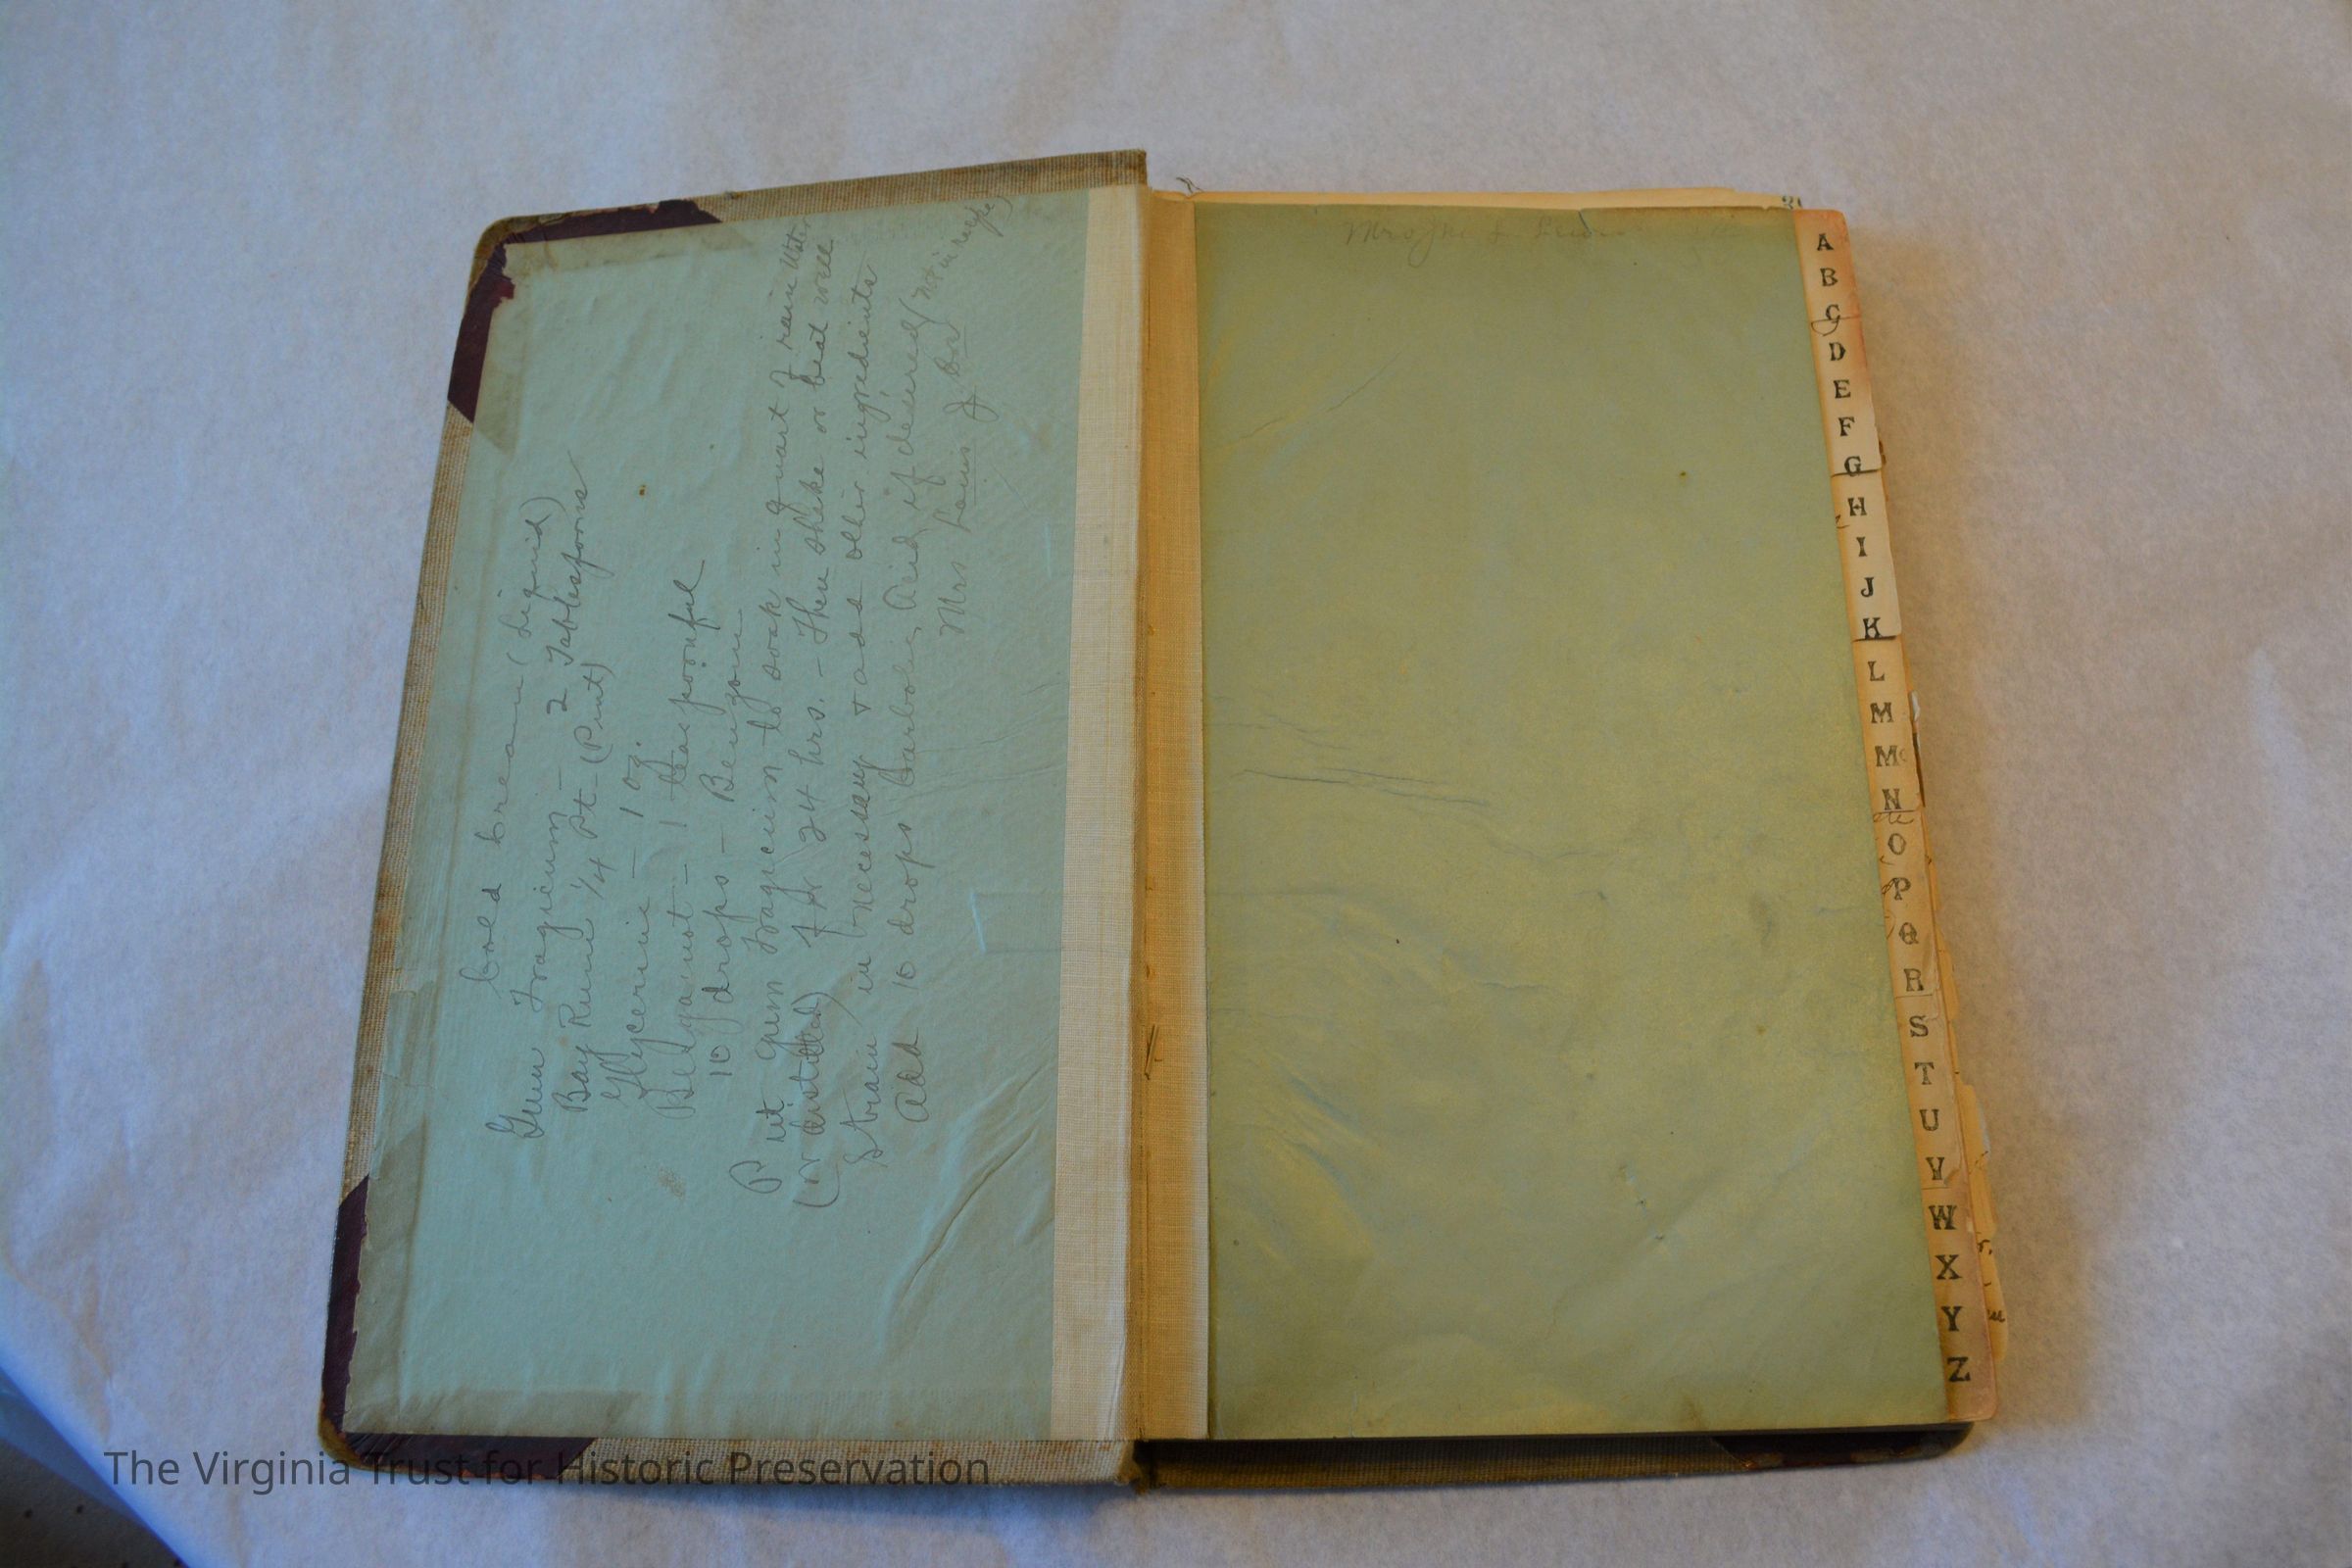 Cold Cream (Liquid)
Gum Tragicum - 2 Tablespoons
Bay Rum 1/4 Pt - (Pint)
Glycerine - 1 oz.
Bergamot - 1 teaspoonful
10 drops - Benzoin
Put gum tragicum to soak in quart of rain water
(or distilled) for 24 hrs. - Then shake or beat well
Strain if necessary + add other ingredients
Add 10 drops Carbolic Acid if desired (not in recipe)
Mrs Louis J.
Mrs
A
B
C
D
E
F
G
H
I
J
K
L
M
Mc
N
O
P
Q
R
S
T
U
V
W
X
Y
Z
The Virginia Trust for Historic Preservation